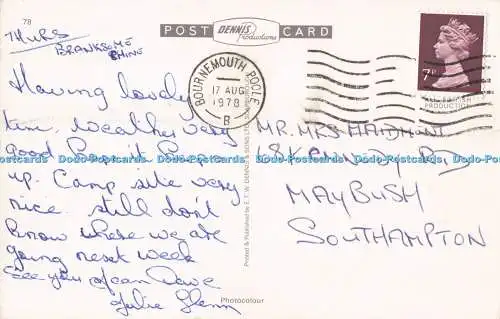 78
POST CARD
DENNIS
Productions
THURS
BRANKSOME
CHINE
Having lovely
time. Weather very
good. Hope it keeps
up. Camp site very
nice. still don't
know where we are
going next week
See you Dave
Julie Glenn
Printed & Published by E. T. W. DENNIS & SONS LTD.
Photocolour
BOURNEMOUTH POOLE
17 AUG
1978
B
7P
BRITISH
PRODUCTION
MR. MRS HAIDMONT
68 KENNEDY RD
MAYBUSH
SOUTHAMPTON
Dodo-Postcards Dodo-Postcards Dodo-Postcards Dodo-Postcards Dodo-Postcards Dodo-Postcards